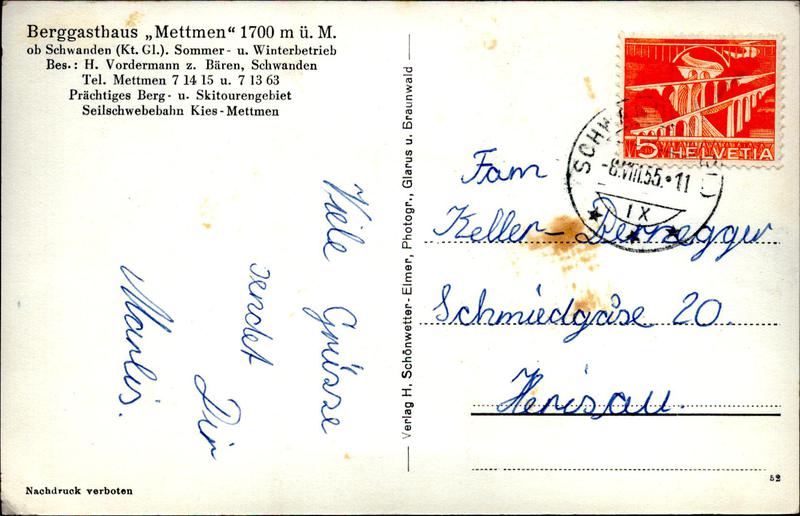 Berggasthaus „Mettmen“ 1700 m ü. M.
ob Schwanden (Kt. Gl.). Sommer- u. Winterbetrieb
Bes.: H. Vordermann z. Bären, Schwanden
Tel. Mettmen 7 14 15 u. 7 13 63
Prächtiges Berg- u. Skitourengebiet
Seilschwebebahn Kies-Mettmen
Viele Grüsse
sendet
Dir
Marlis.
Nachdruck verboten
Verlag H. Schönwetter-Elmer, Photogr., Glarus u. Braunwald
5 HELVETIA
-8.VIII.55.-11
IX
Fam
Keller-Dernegger
Schmiedgasse 20.
Herisau.
52